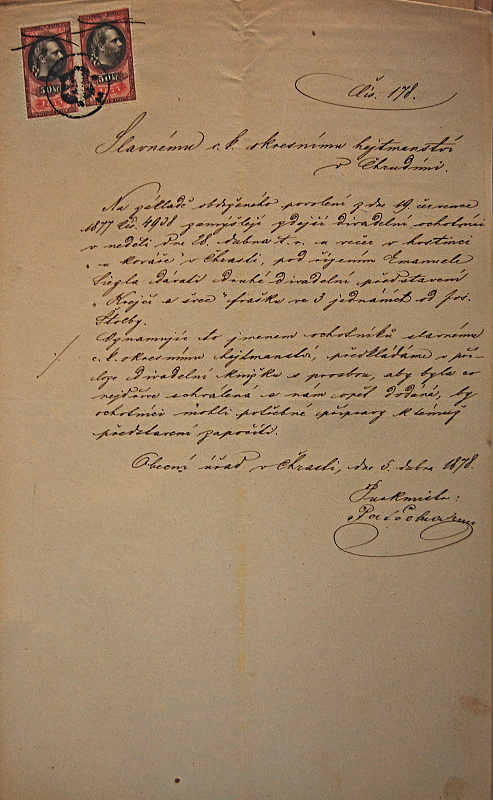 50 kr
50 kr
Čís. 178.
Slavnému c. k. okresnímu hejtmanství
v Chrudimi.
Na základě obdrženého povolení z dne 19. července
1877 čís. 4938 zamýšlejí zdejší divadelní ochotníci
v neděli dne 28. dubna t. r. u večer v hostinci
"u kováře" v Chrasti, pod řízením Emanuele
Siegla dávati druhé divadelní představení
"Krejčí a švec" frašku ve 3 jednáních od Jos.
Štolby.
Oznamujíc to jmenem ochotníků slavnému
c. k. okresnímu hejtmanství, předkládáme v pří-
loze divadelní knížku s prosbou, aby byla co
nejdříve schválená a nám opět dodána, by
ochotníci mohli potřebné přípravy k tomuto
představení započíti.
Obecní úřad v Chrasti, dne 5. dubna 1878.
Purkmistr: